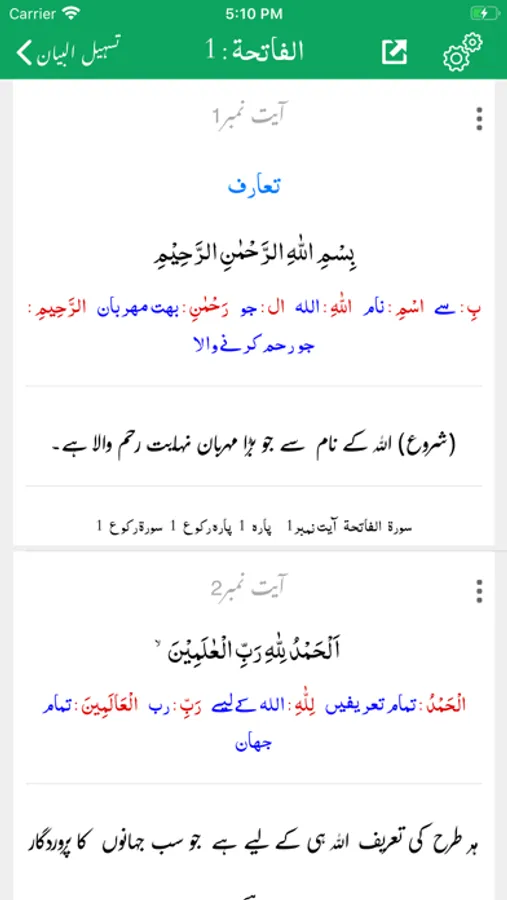 Carrier 5:10 PM
تسہیل البیان الفاتحة : 1
آیت نمبر1
تعارف
بِسْمِ اللّٰهِ الرَّحْمٰنِ الرَّحِيْمِ
بِ: سے اسْمِ: نام اللّٰهِ: الله ال: جو رَحْمٰنِ: بهت مهربان الرَّحِيمِ:
جو رحم کرنے والا
(شروع) اللہ کے نام سے جو بڑا مہربان نہایت رحم والا ہے۔
سورة الفاتحة آیت نمبر1 پارہ 1 پارہ رکوع 1 سورۃ رکوع 1
آیت نمبر2
اَلْحَمْدُ لِلّٰهِ رَبِّ الْعٰلَمِيْنَ ۙ
الْحَمْدُ: تمام تعریفیں لِلّٰهِ: الله کے لیے رَبِّ: رب الْعَالَمِينَ: تمام
جهان
ہر طرح کی تعریف اللہ ہی کے لیے ہے جو سب جہانوں کا پروردگار